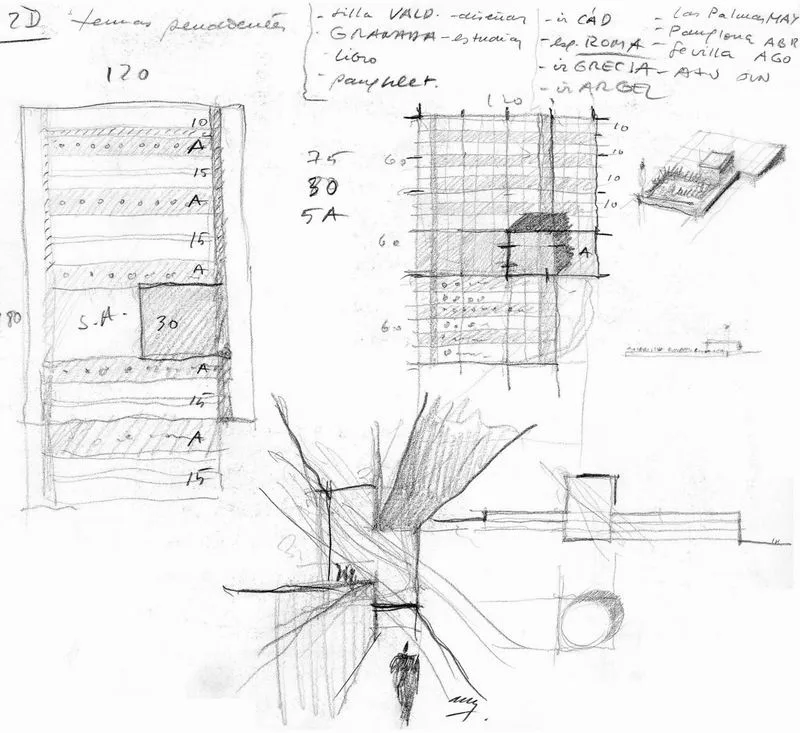 2D temas pendientes
- silla VALD. - diseñar
- GRANADA - estudiar
- libro
- pamphlet.
- ir CÁD
- esp. ROMA
- ir GRECIA
- ir ARGEL
- Las Palmas MAY
- Pamplona ABR
- Sevilla AGO
120
10
A
15
A
15
A
S.A.
30
A
15
A
15
75
30
5A
120
60
60
60
10
10
10
10
A